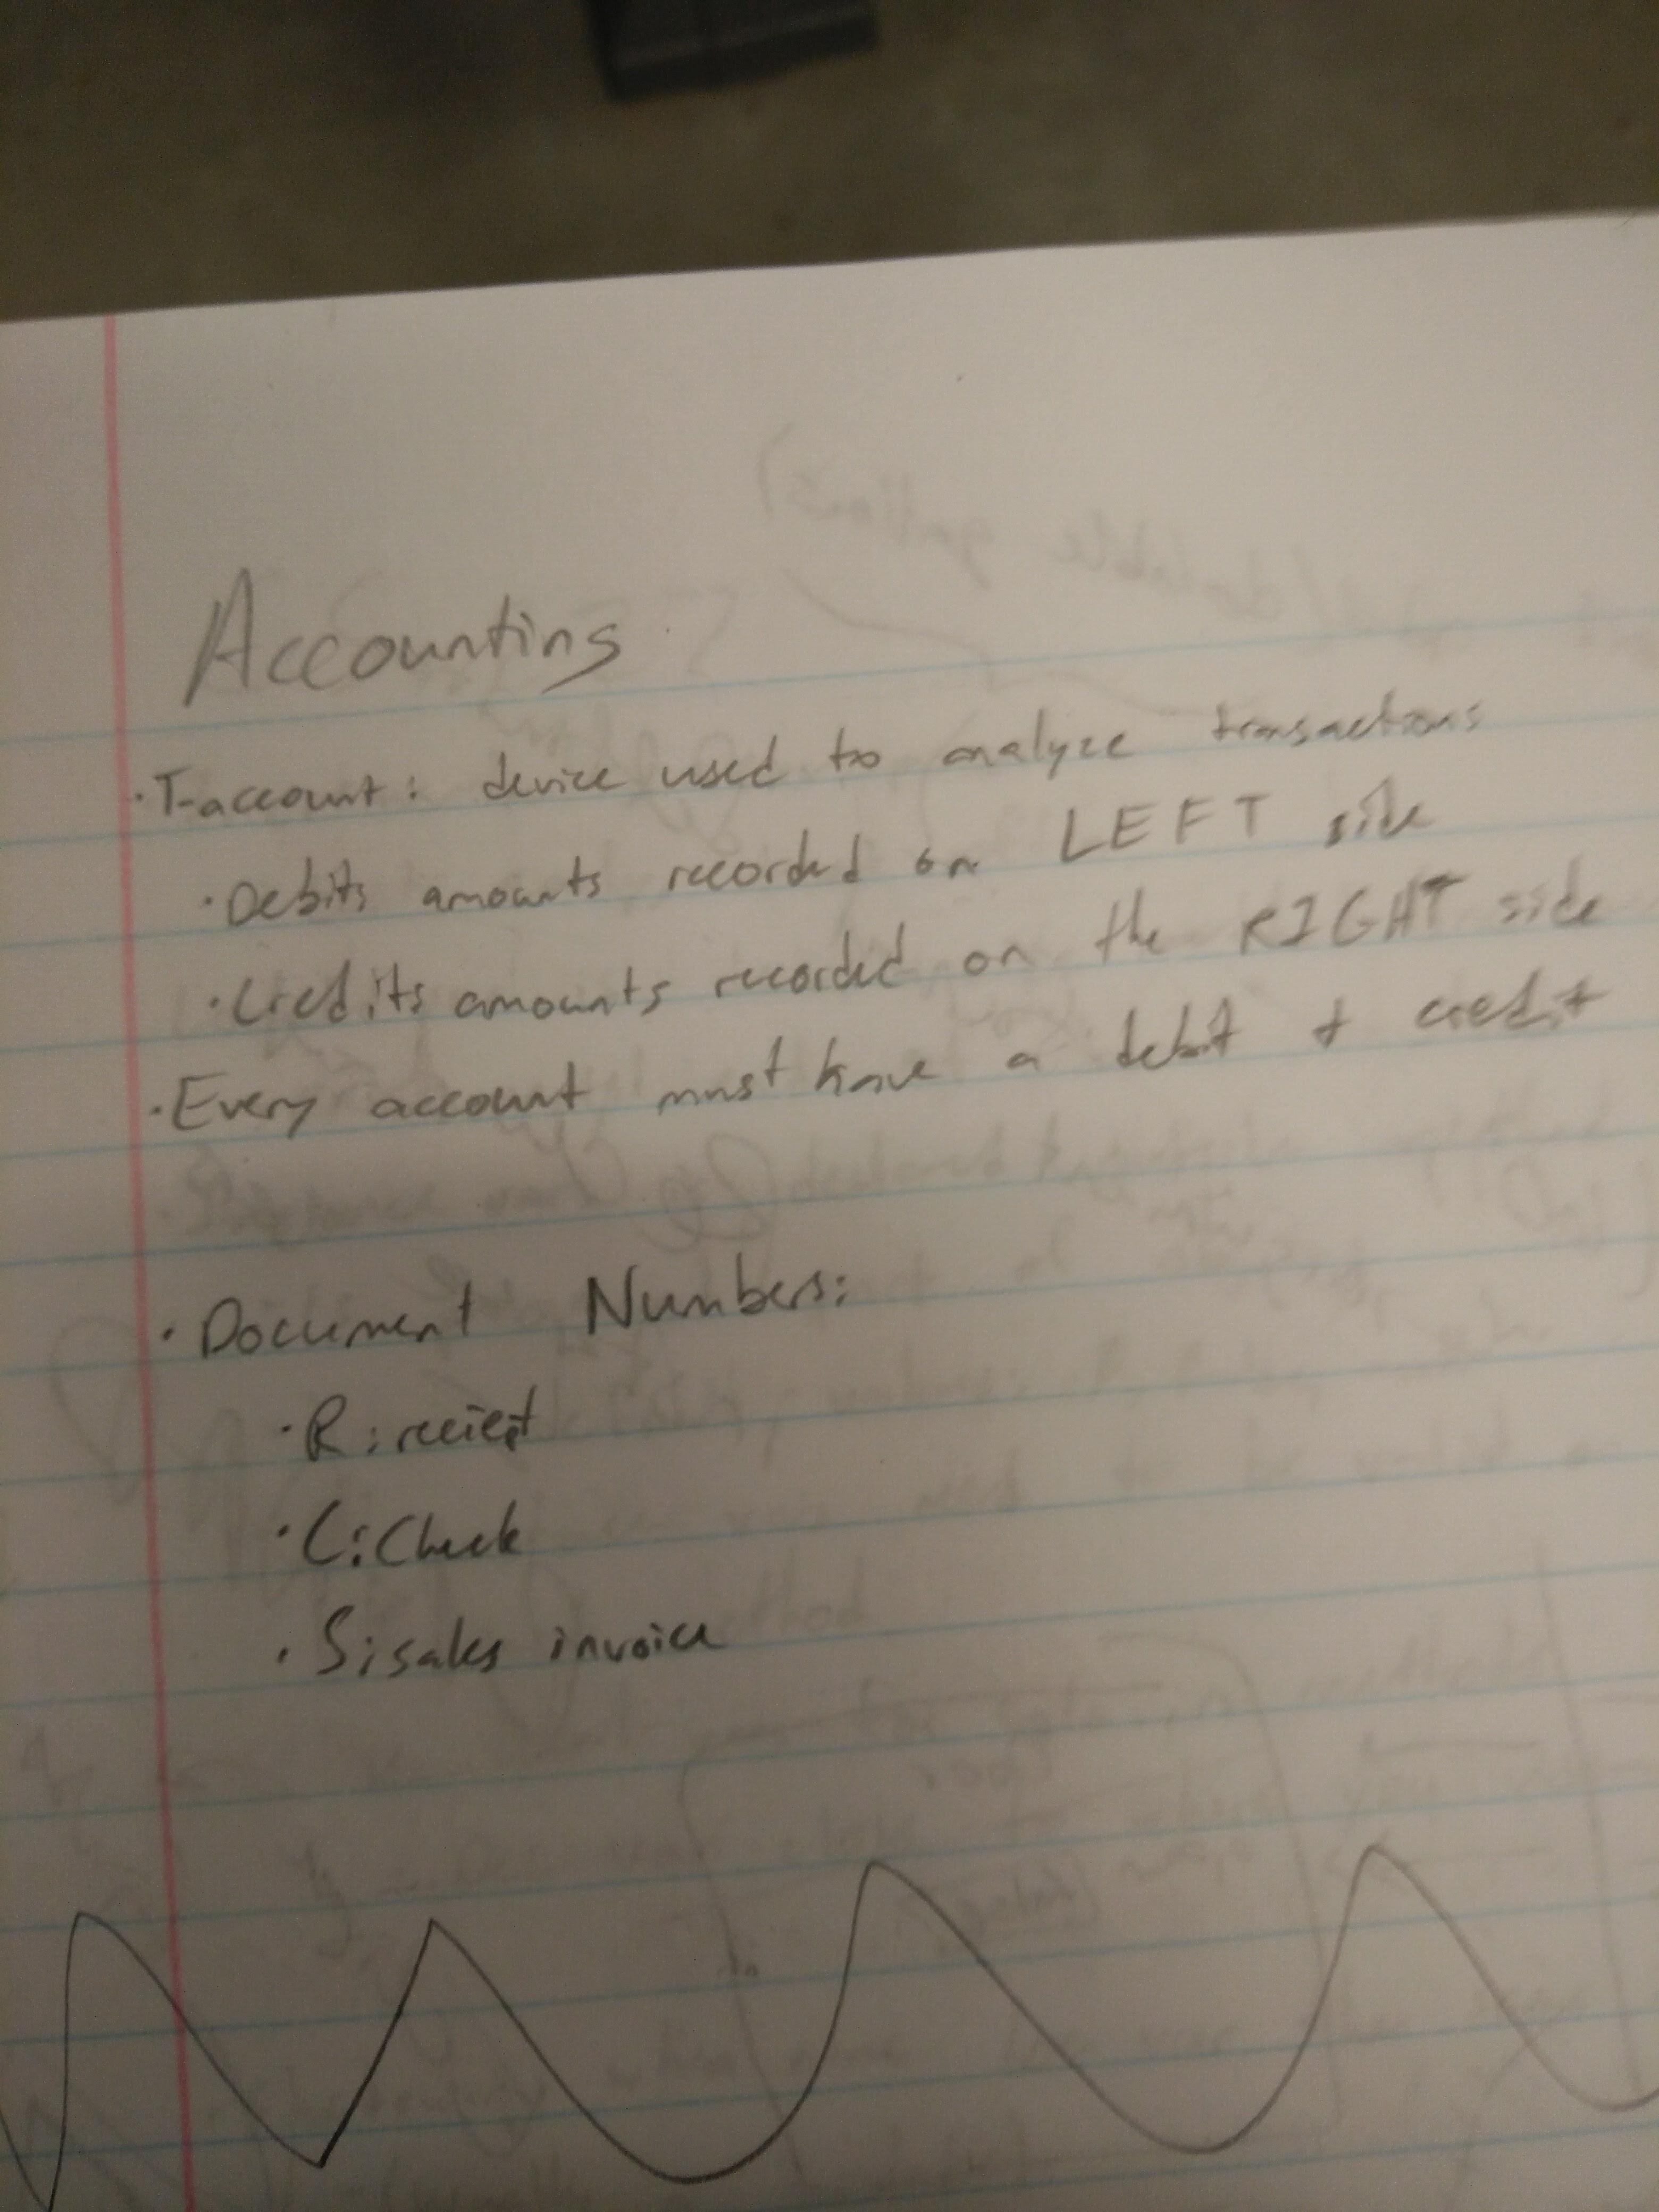 Accounting
·T-account: device used to analyze transactions
·Debits amounts recorded on LEFT side
·Credits amounts recorded on the RIGHT side
·Every account must have a debit + credit
·Document Numbers:
·R: reciept
·C: Check
·S: sales invoice